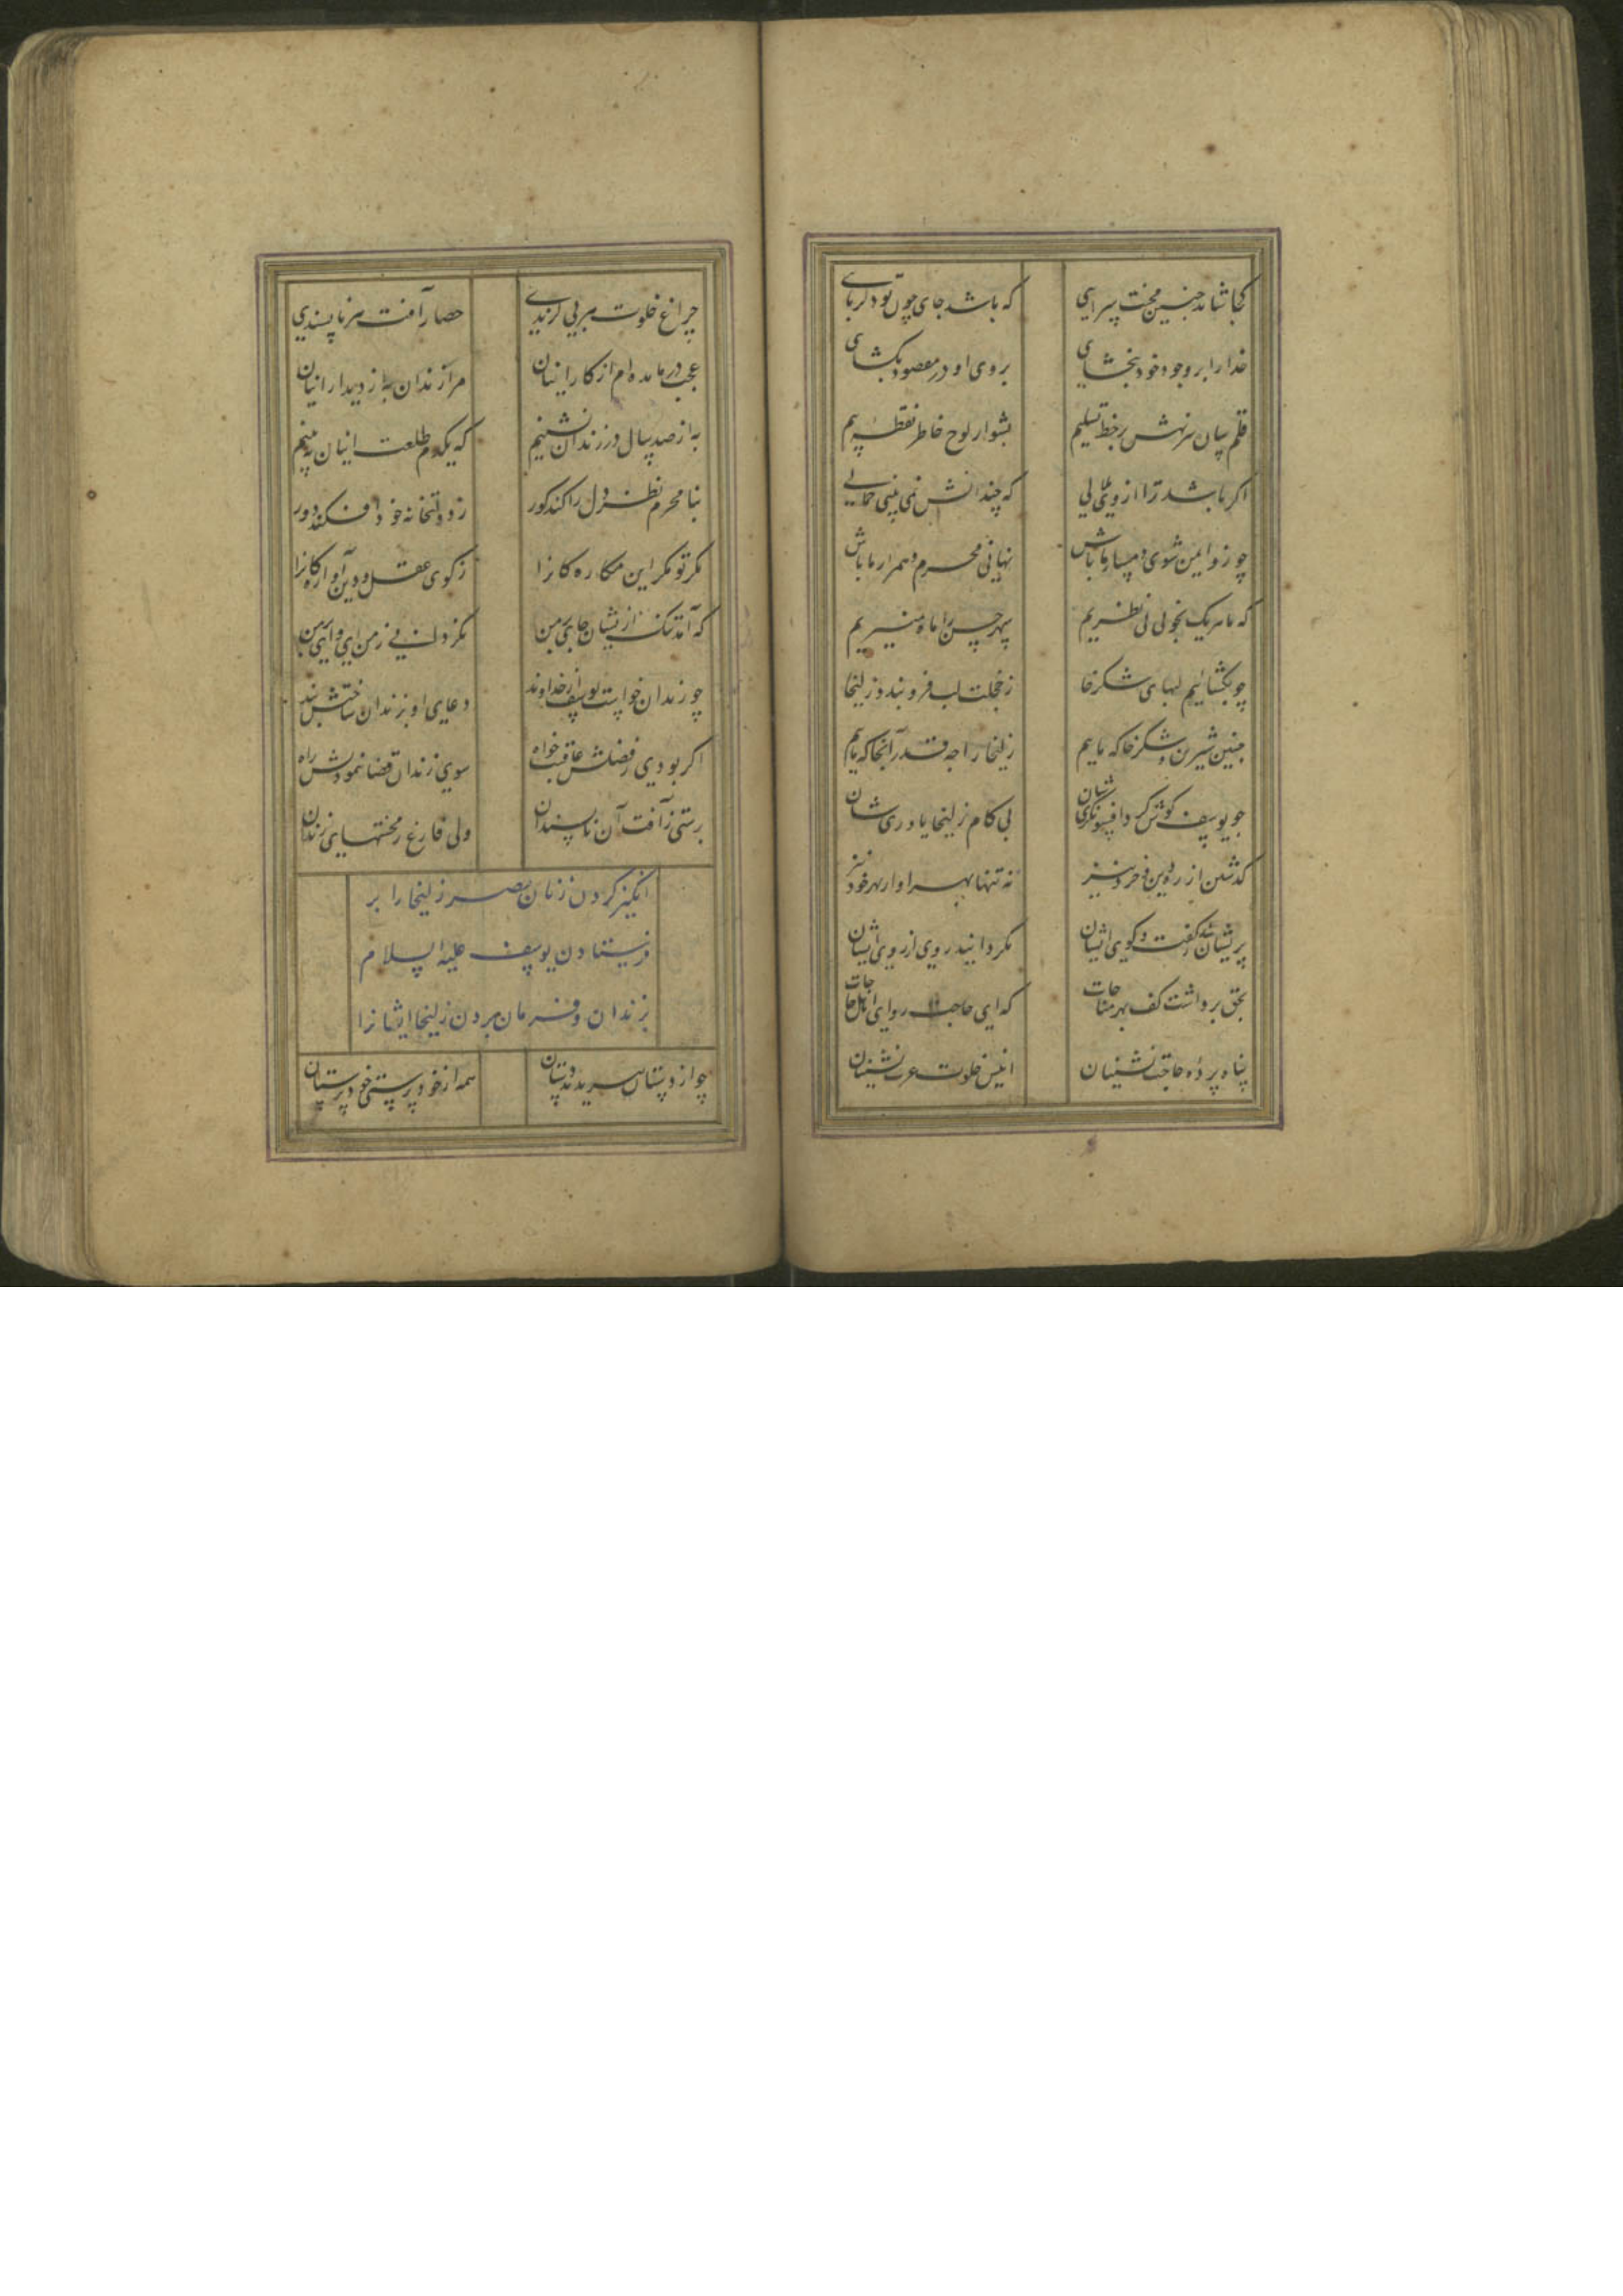 کجا شاید چنین محنت سرایی
که باشد جای چون تو دلربای
خدا را بر وجود خود بخشای
بروی او در مقصود بکشای
قلم سان سر نهش بر خط تسلیم
بشو از لوح خاطر نقطه بیم
اکر باشد ترا از وی ملالی
که چندانش نمی بینی جمالی
چو زو ایمن شوی دمساز ما باش
نهانی محرم و همراز ما باش
که ما هر یک بخوبی بی نظیریم
سپهر حسن را ماه منیریم
چو بکشاییم لبهای شکرخا
ز خجلت لب فرو بندد زلیخا
چنین شیرین و شکرخا که ماییم
زلیخا را چه قدر آنجا که ماییم
چو یوسف کوش کرد افسونکریشان
پی کام زلیخا یاوریشان
کذشتن از ره دین و خرد نیز
نه تنها بهر او از بهر خود نیز
پریشان شد ز کفت و کوی ایشان
بکردانید روی از روی ایشان
بحق برداشت کف بهر مناجات
که ای حاجت روای اهل حاجات
پناه پرده حاجت نشینان
انیس خلوت عزلت نشینان
چراغ خلوت هر بی کزندی
حصار آفت هر ناپسندی
عجب درمانده ام از کار اینان
مرا زندان به از دیدار اینان
به از صد سال در زندان نشینم
که یکدم طلعت اینان به بینم
بنا محرم نظر دل را کند کور
ز دولتخانه خود افکند دور
مکر تو مکر این مکاره کانرا
ز کوی عقل و دین آواره کانرا
که آمد تنک ازیشان جای بر من
نکردانی ز من ای وای بر من
چو زندان خواست یوسف از خداوند
دعای او بزندان ساختش بند
اکر بودی ز فضلش عاقبت خواه
سوی زندان قضا ننمودیش راه
برستی ز آفت آن ناپسندان
ولی فارغ ز محنتهای زندان
انکیز کردن زنان مصر زلیخا را بر
فرستادن یوسف علیه السلام
بزندان و فرمان بردن زلیخا ایشانرا
چو از دستان بریدند دستان
همه از خود پرستی خود پرستان